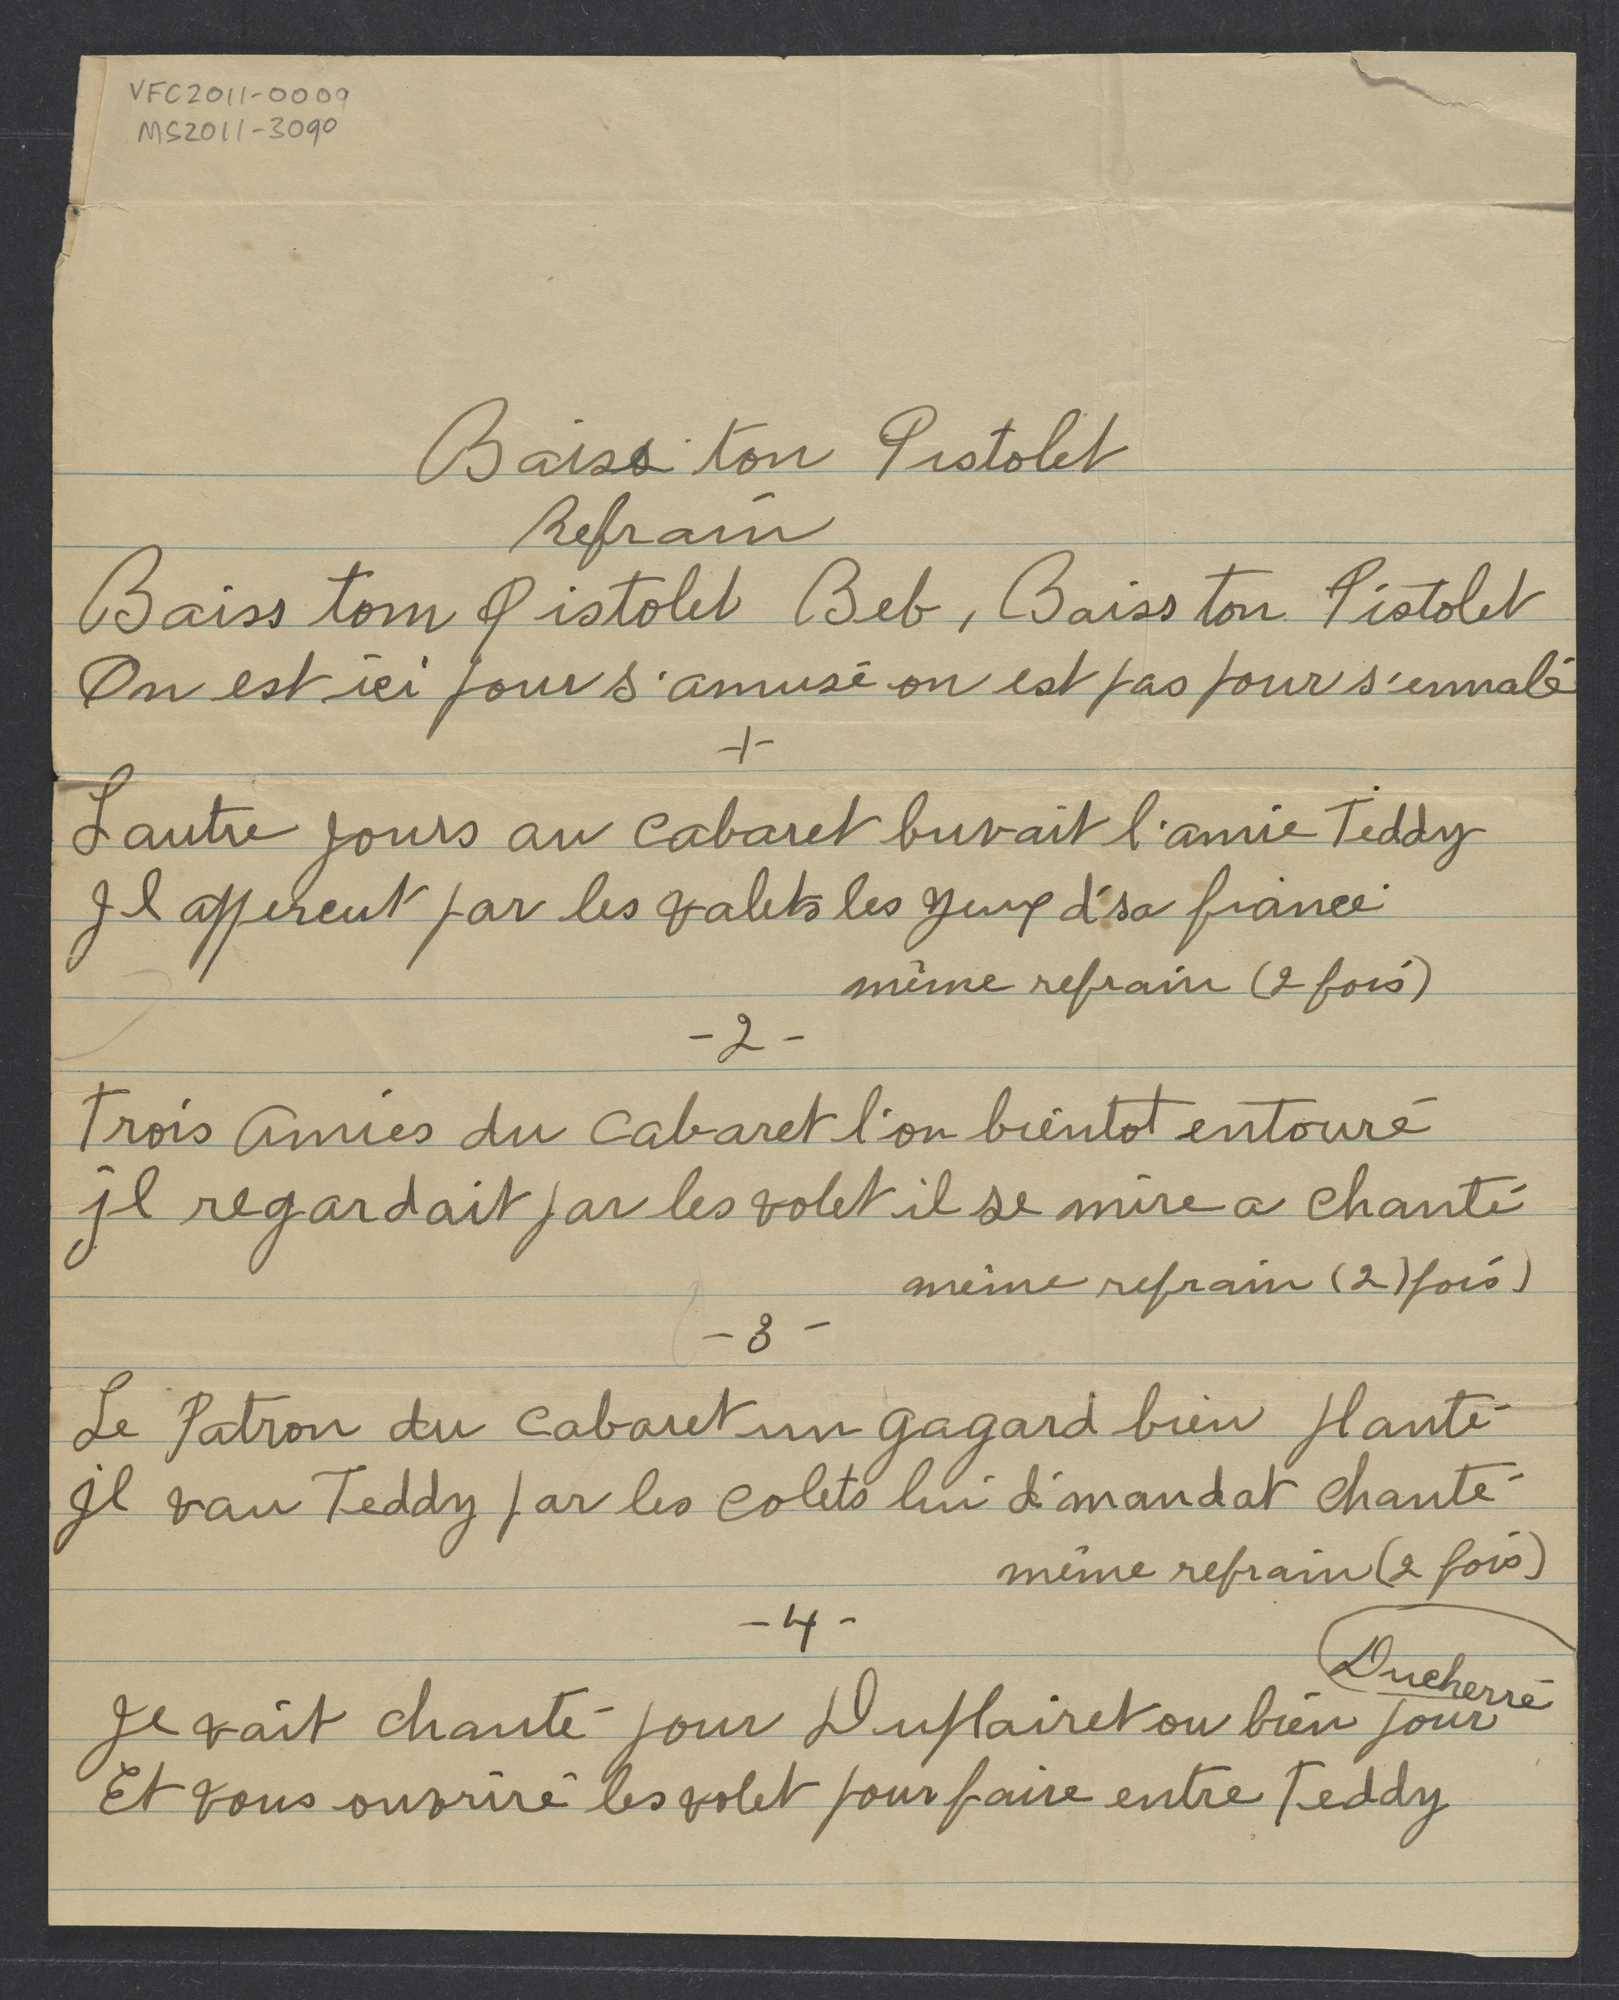 VFC2011-0009
MS2011-3090
Baiss ton Pistolet
Refrain
Baiss tom Pistolet Beb, Baiss ton Pistolet
On est ici pour s'amusé on est pas pour s'ennalé
+
L'autre jours au cabaret buvait l'amie Teddy
Jl apperçut par les valets les yeux d'sa fiancé
même refrain (2 fois)
-2-
Trois amies du cabaret l'on bientot entouré
jl regardait par les volet il se mire a chanté
même refrain (2) fois)
-3-
Le Patron du cabaret un gagard bien planté
jl vau Teddy par les colets lui d'mandat chanté
même refrain (2 fois)
-4-
Je vait chanté pour Duplairet ou bien pour Ducherré
Et vous ouvriré les volet pour faire entre Teddy